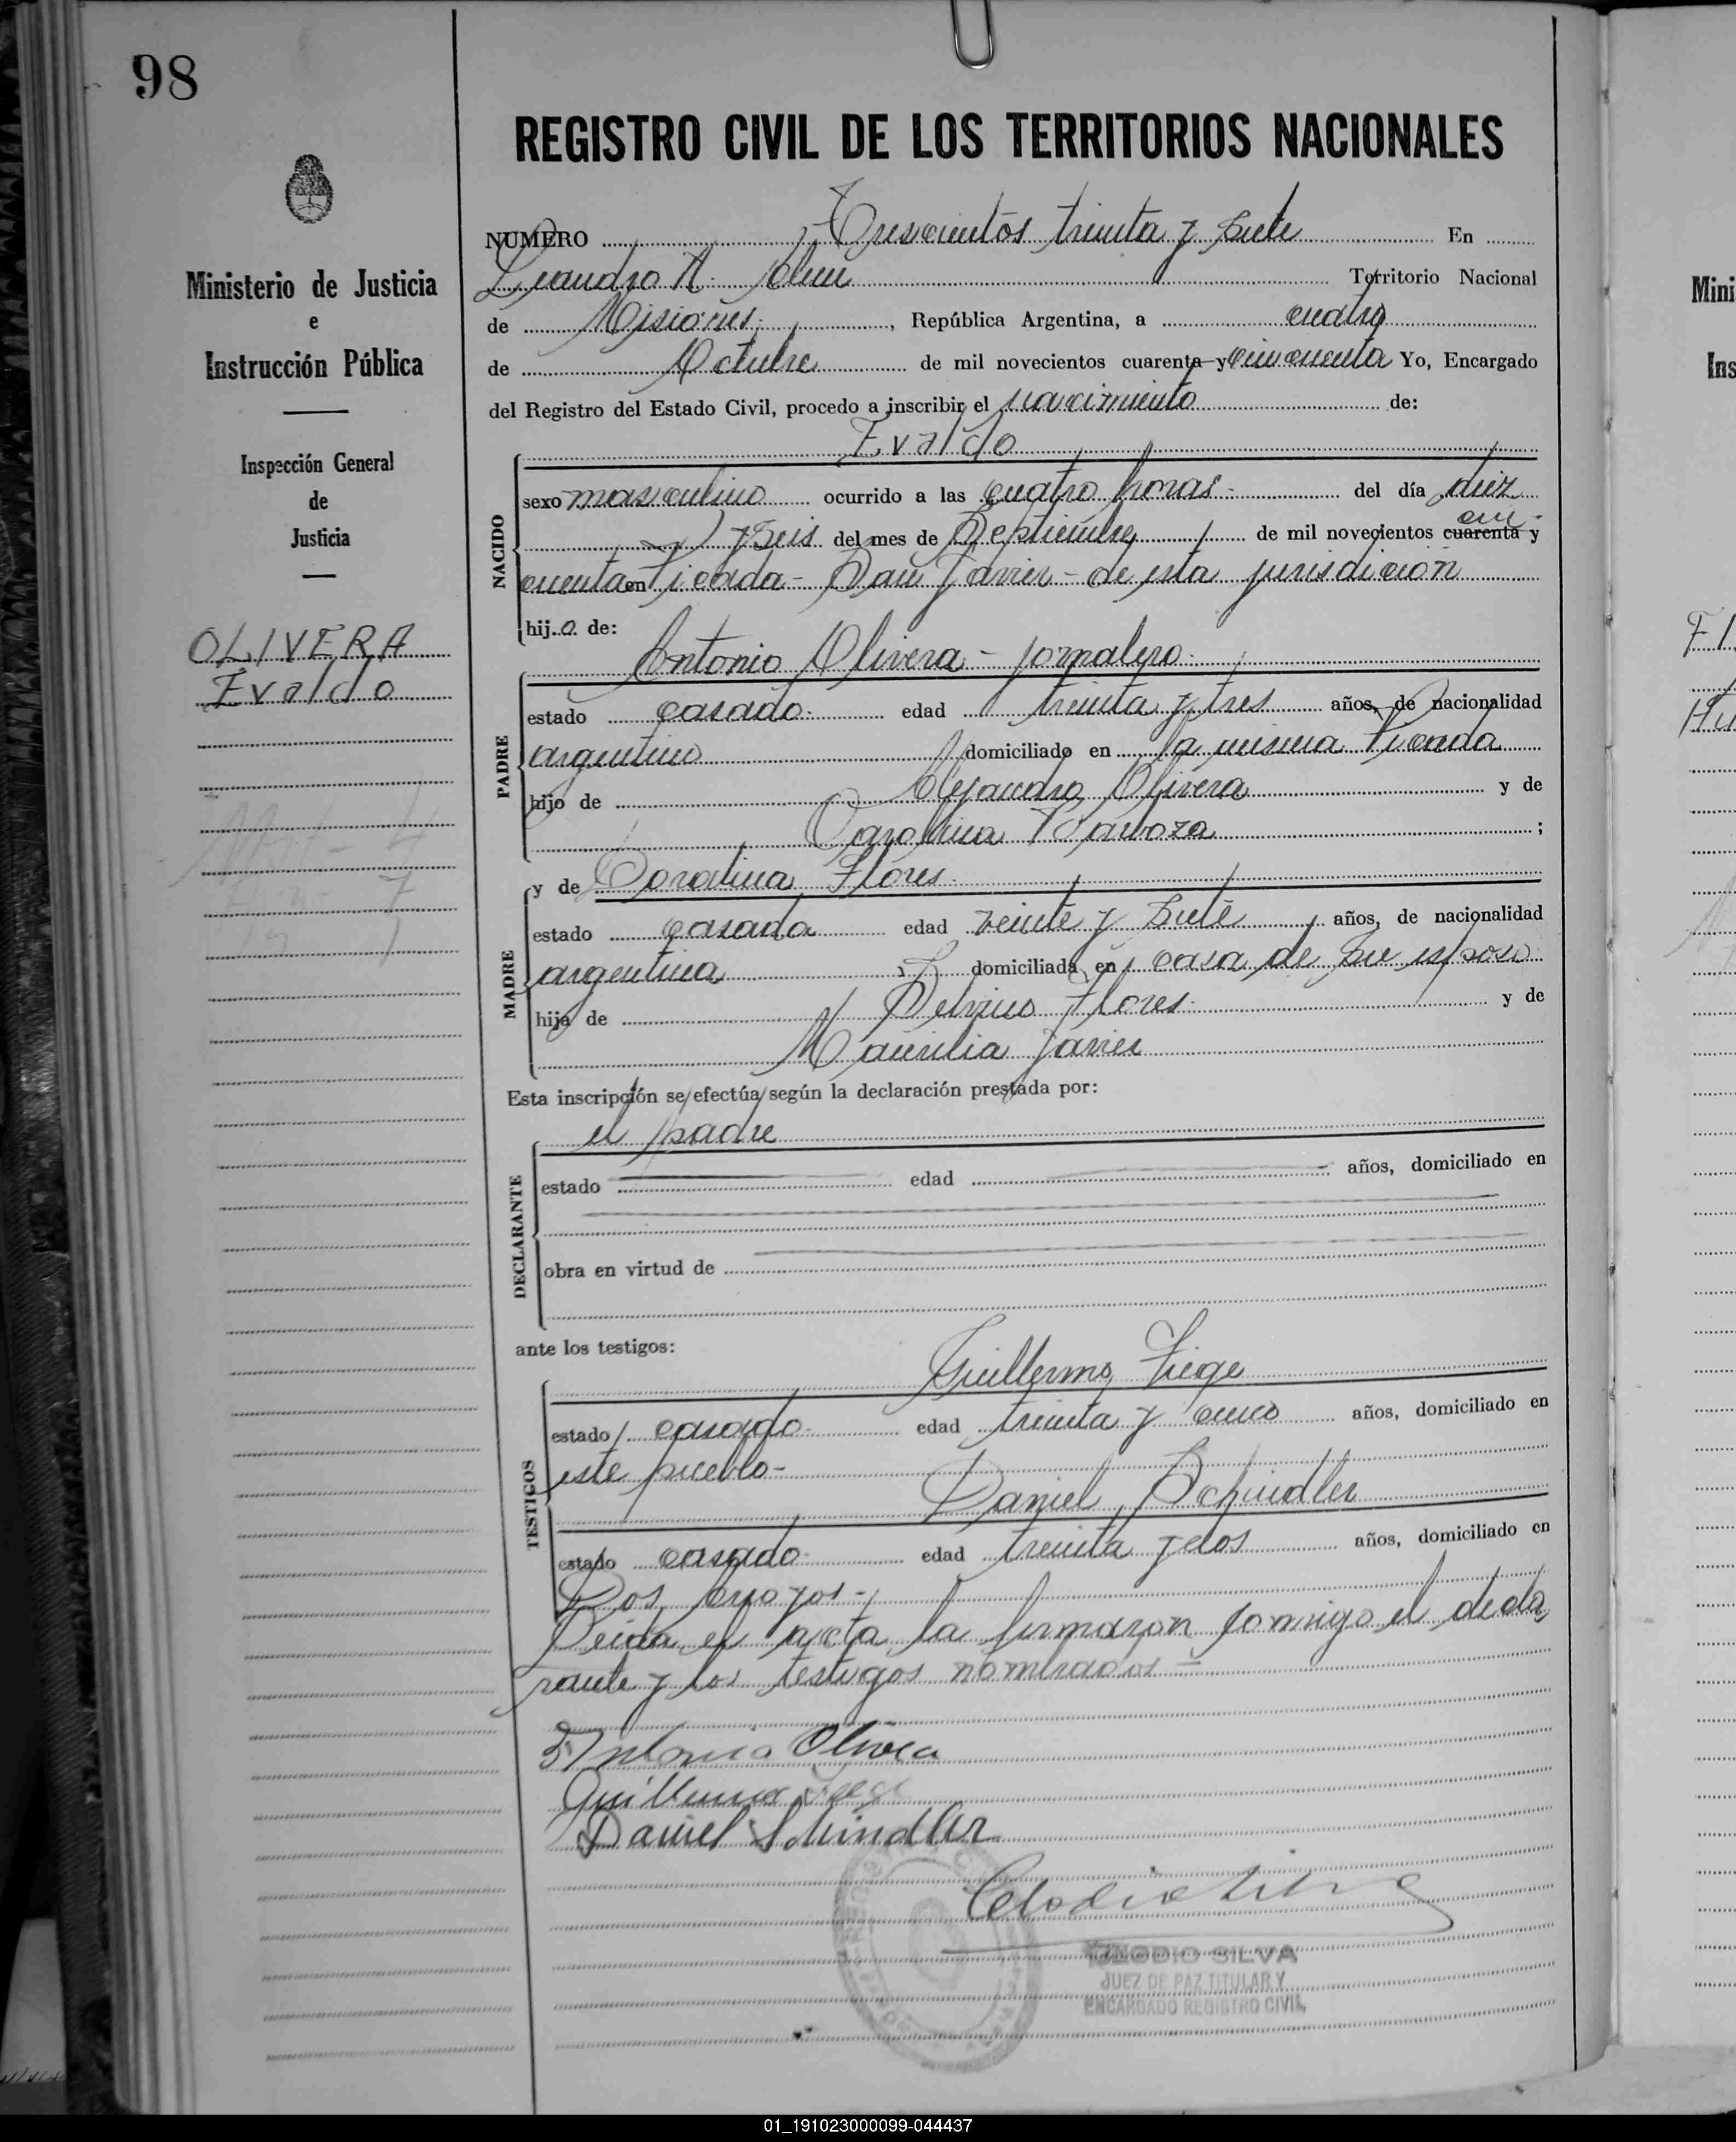 98
REGISTRO CIVIL DE LOS TERRITORIOS NACIONALES
Ministerio de Justicia
e
Instrucción Pública
Inspección General
de
Justicia
OLIVERA
Evaldo
NUMERO Trescientos treinta y siete En
Leandro N. Alem Territorio Nacional
de Misiones, República Argentina, a cuatro
de Octubre de mil novecientos cuarenta y cincuenta Yo, Encargado
del Registro del Estado Civil, procedo a inscribir el nacimiento de:
Evaldo
NACIDO
sexo masculino ocurrido a las cuatro horas- del día diez
y seis del mes de Septiembre de mil novecientos cuarenta y cin-
cuenta en Picada - San Javier - de esta jurisdicion
hijo de:
Antonio Olivera - jornalero-
PADRE
estado casado- edad treinta y tres años, de nacionalidad
argentino domiciliado en la misma Picada
hijo de Alejandro Olivera y de
Carolina Barboza ;
MADRE
y de Coralina Flores-
estado casada edad veinte y siete años, de nacionalidad
argentina domiciliada en casa de su esposo-
hija de Flores- y de
Javier
Esta inscripción se efectúa según la declaración prestada por:
el padre
DECLARANTE
estado edad años, domiciliado en
obra en virtud de
ante los testigos:
Guillermo
TESTIGOS
estado casado- edad treinta y cinco años, domiciliado en
este pueblo-
Daniel Schindler
estado casado- edad treinta y dos años, domiciliado en
Dos Arroyos-
Leida el acta la firmaron conmigo el decla
rante y los testigos nombrados -
Antonio Olivera
Guillermo
Daniel Schindler
Clodio Silva
CLODIO SILVA
JUEZ DE PAZ TITULAR Y
ENCARGADO REGISTRO CIVIL
01_191023000099-044437